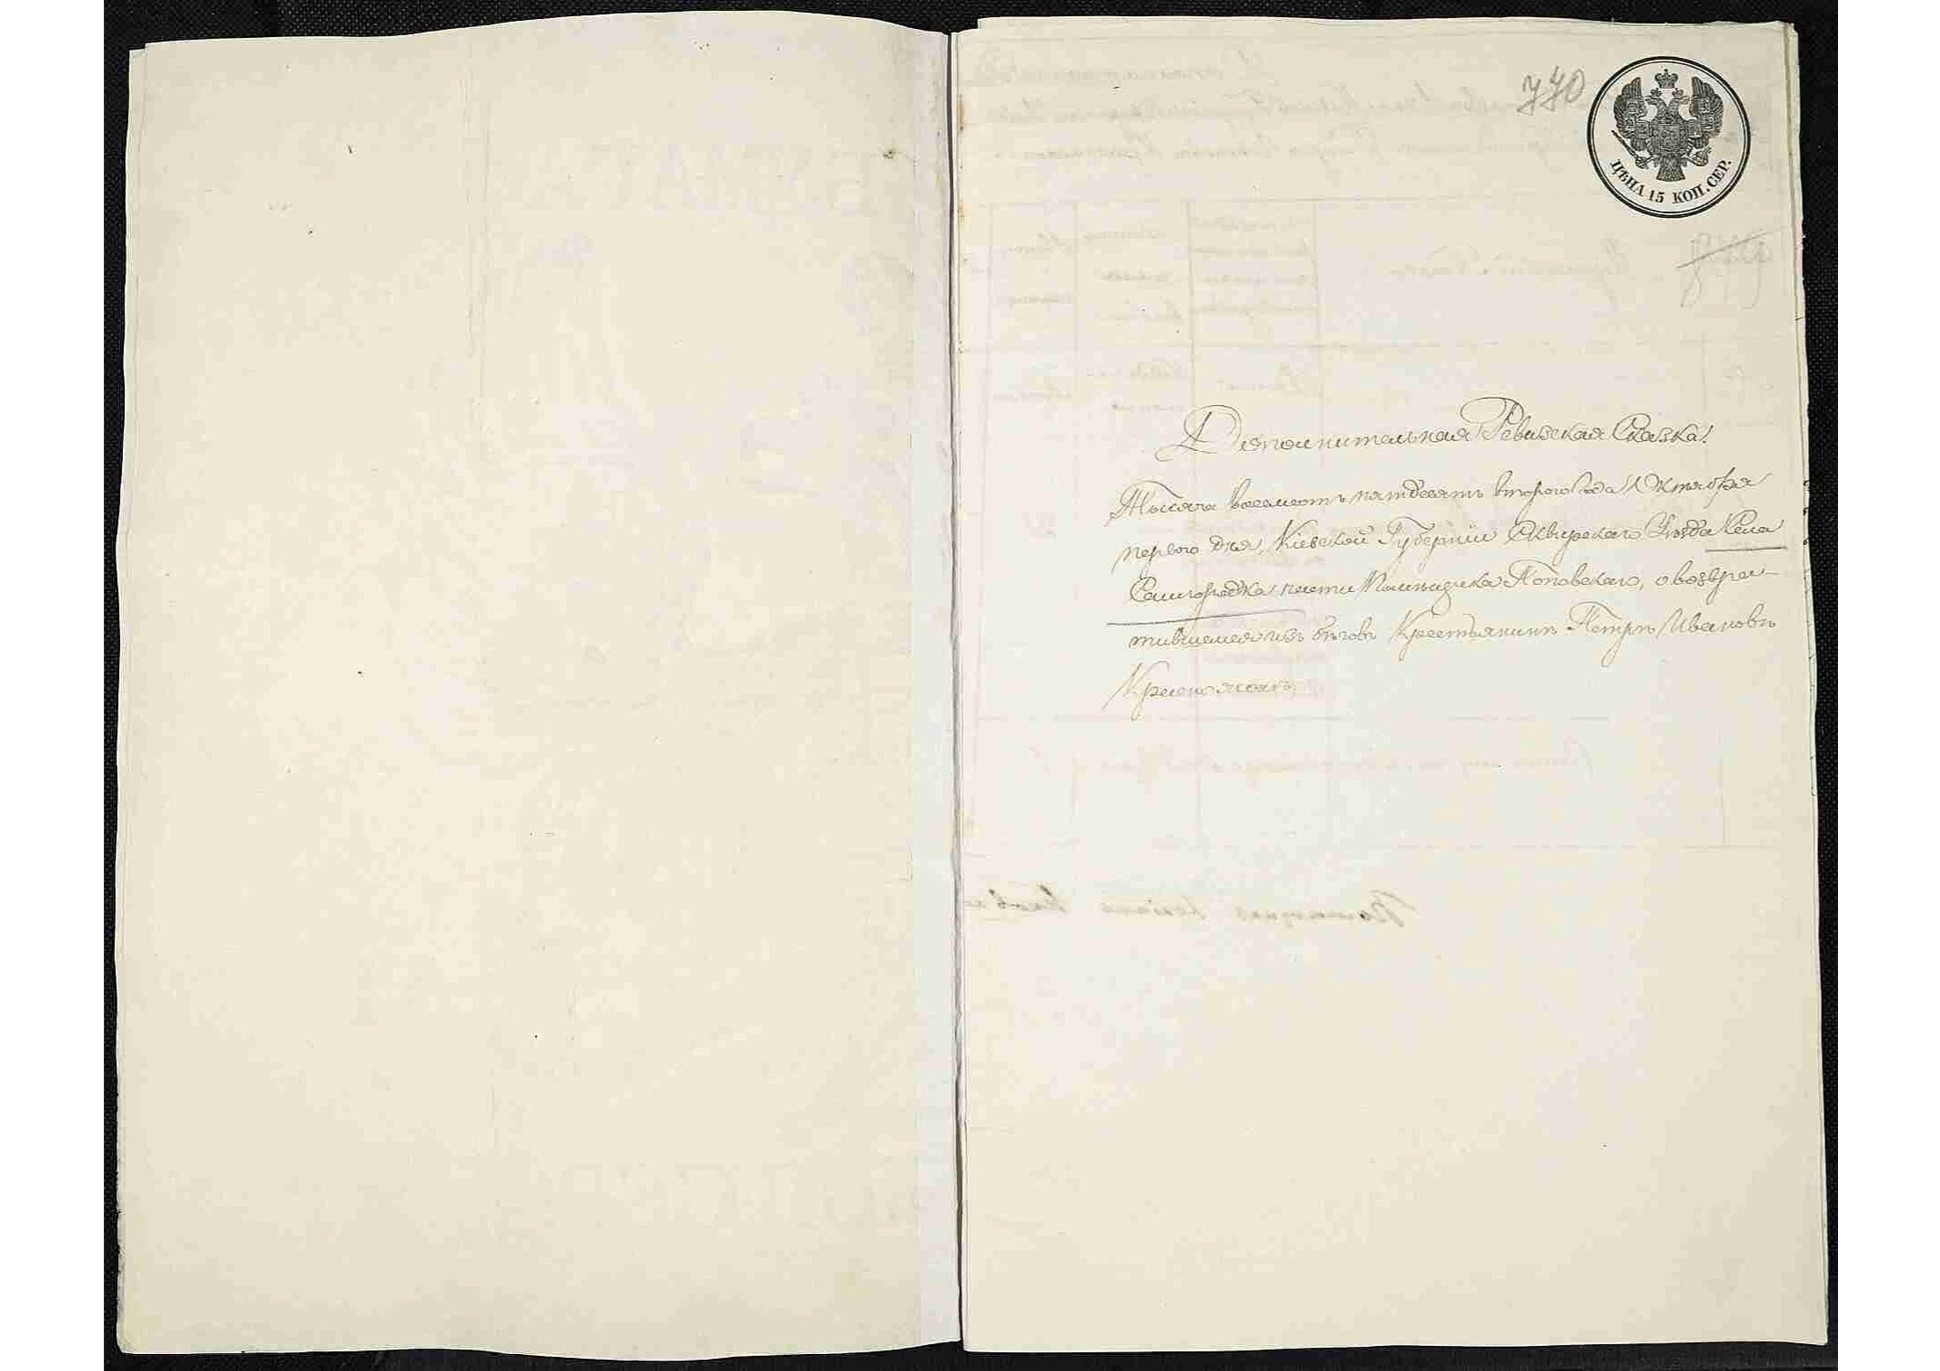 770
ЦѢНА 15 КОП. СЕР.
Дополнительная Ревизская Сказка!
Тысяча восемсотъ пятдесятъ втораго года Октября
перваго дня, Кіевской Губерніи Сквирскаго Уѣзда Села
Самгородка части Помѣщика Поповскаго, о возвра-
тившемся изъ бѣговъ Крестьянинѣ Петрѣ Ивановѣ